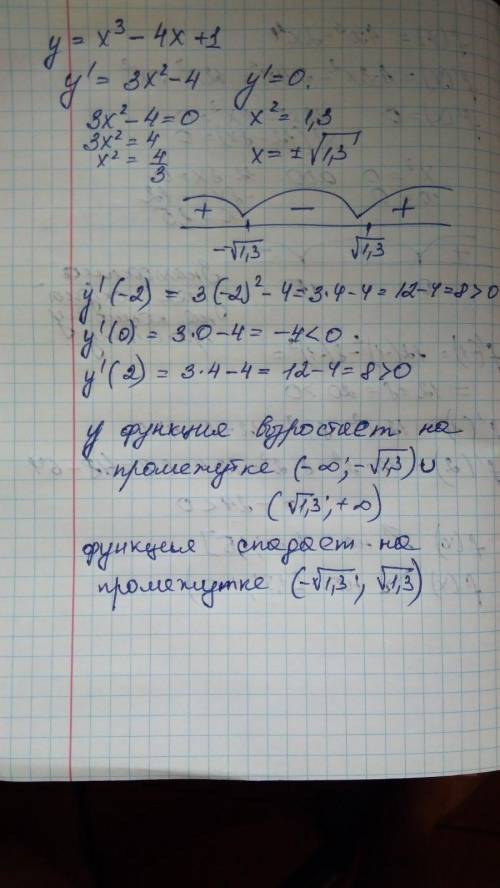 y = x³ - 4x + 1
y' = 3x² - 4 y' = 0.
3x² - 4 = 0 x² = 1,3
3x² = 4 x = ±√1,3
x² = 4/3
+ - +
-√1,3 √1,3
y'(-2) = 3(-2)² - 4 = 3·4 - 4 = 12 - 4 = 8 > 0
y'(0) = 3·0 - 4 = -4 < 0
y'(2) = 3·4 - 4 = 12 - 4 = 8 > 0
y функция возростает на
промежутке (-∞; -√1,3) ∪
(√1,3; +∞)
функция спадает на
промежутке (-√1,3; √1,3)